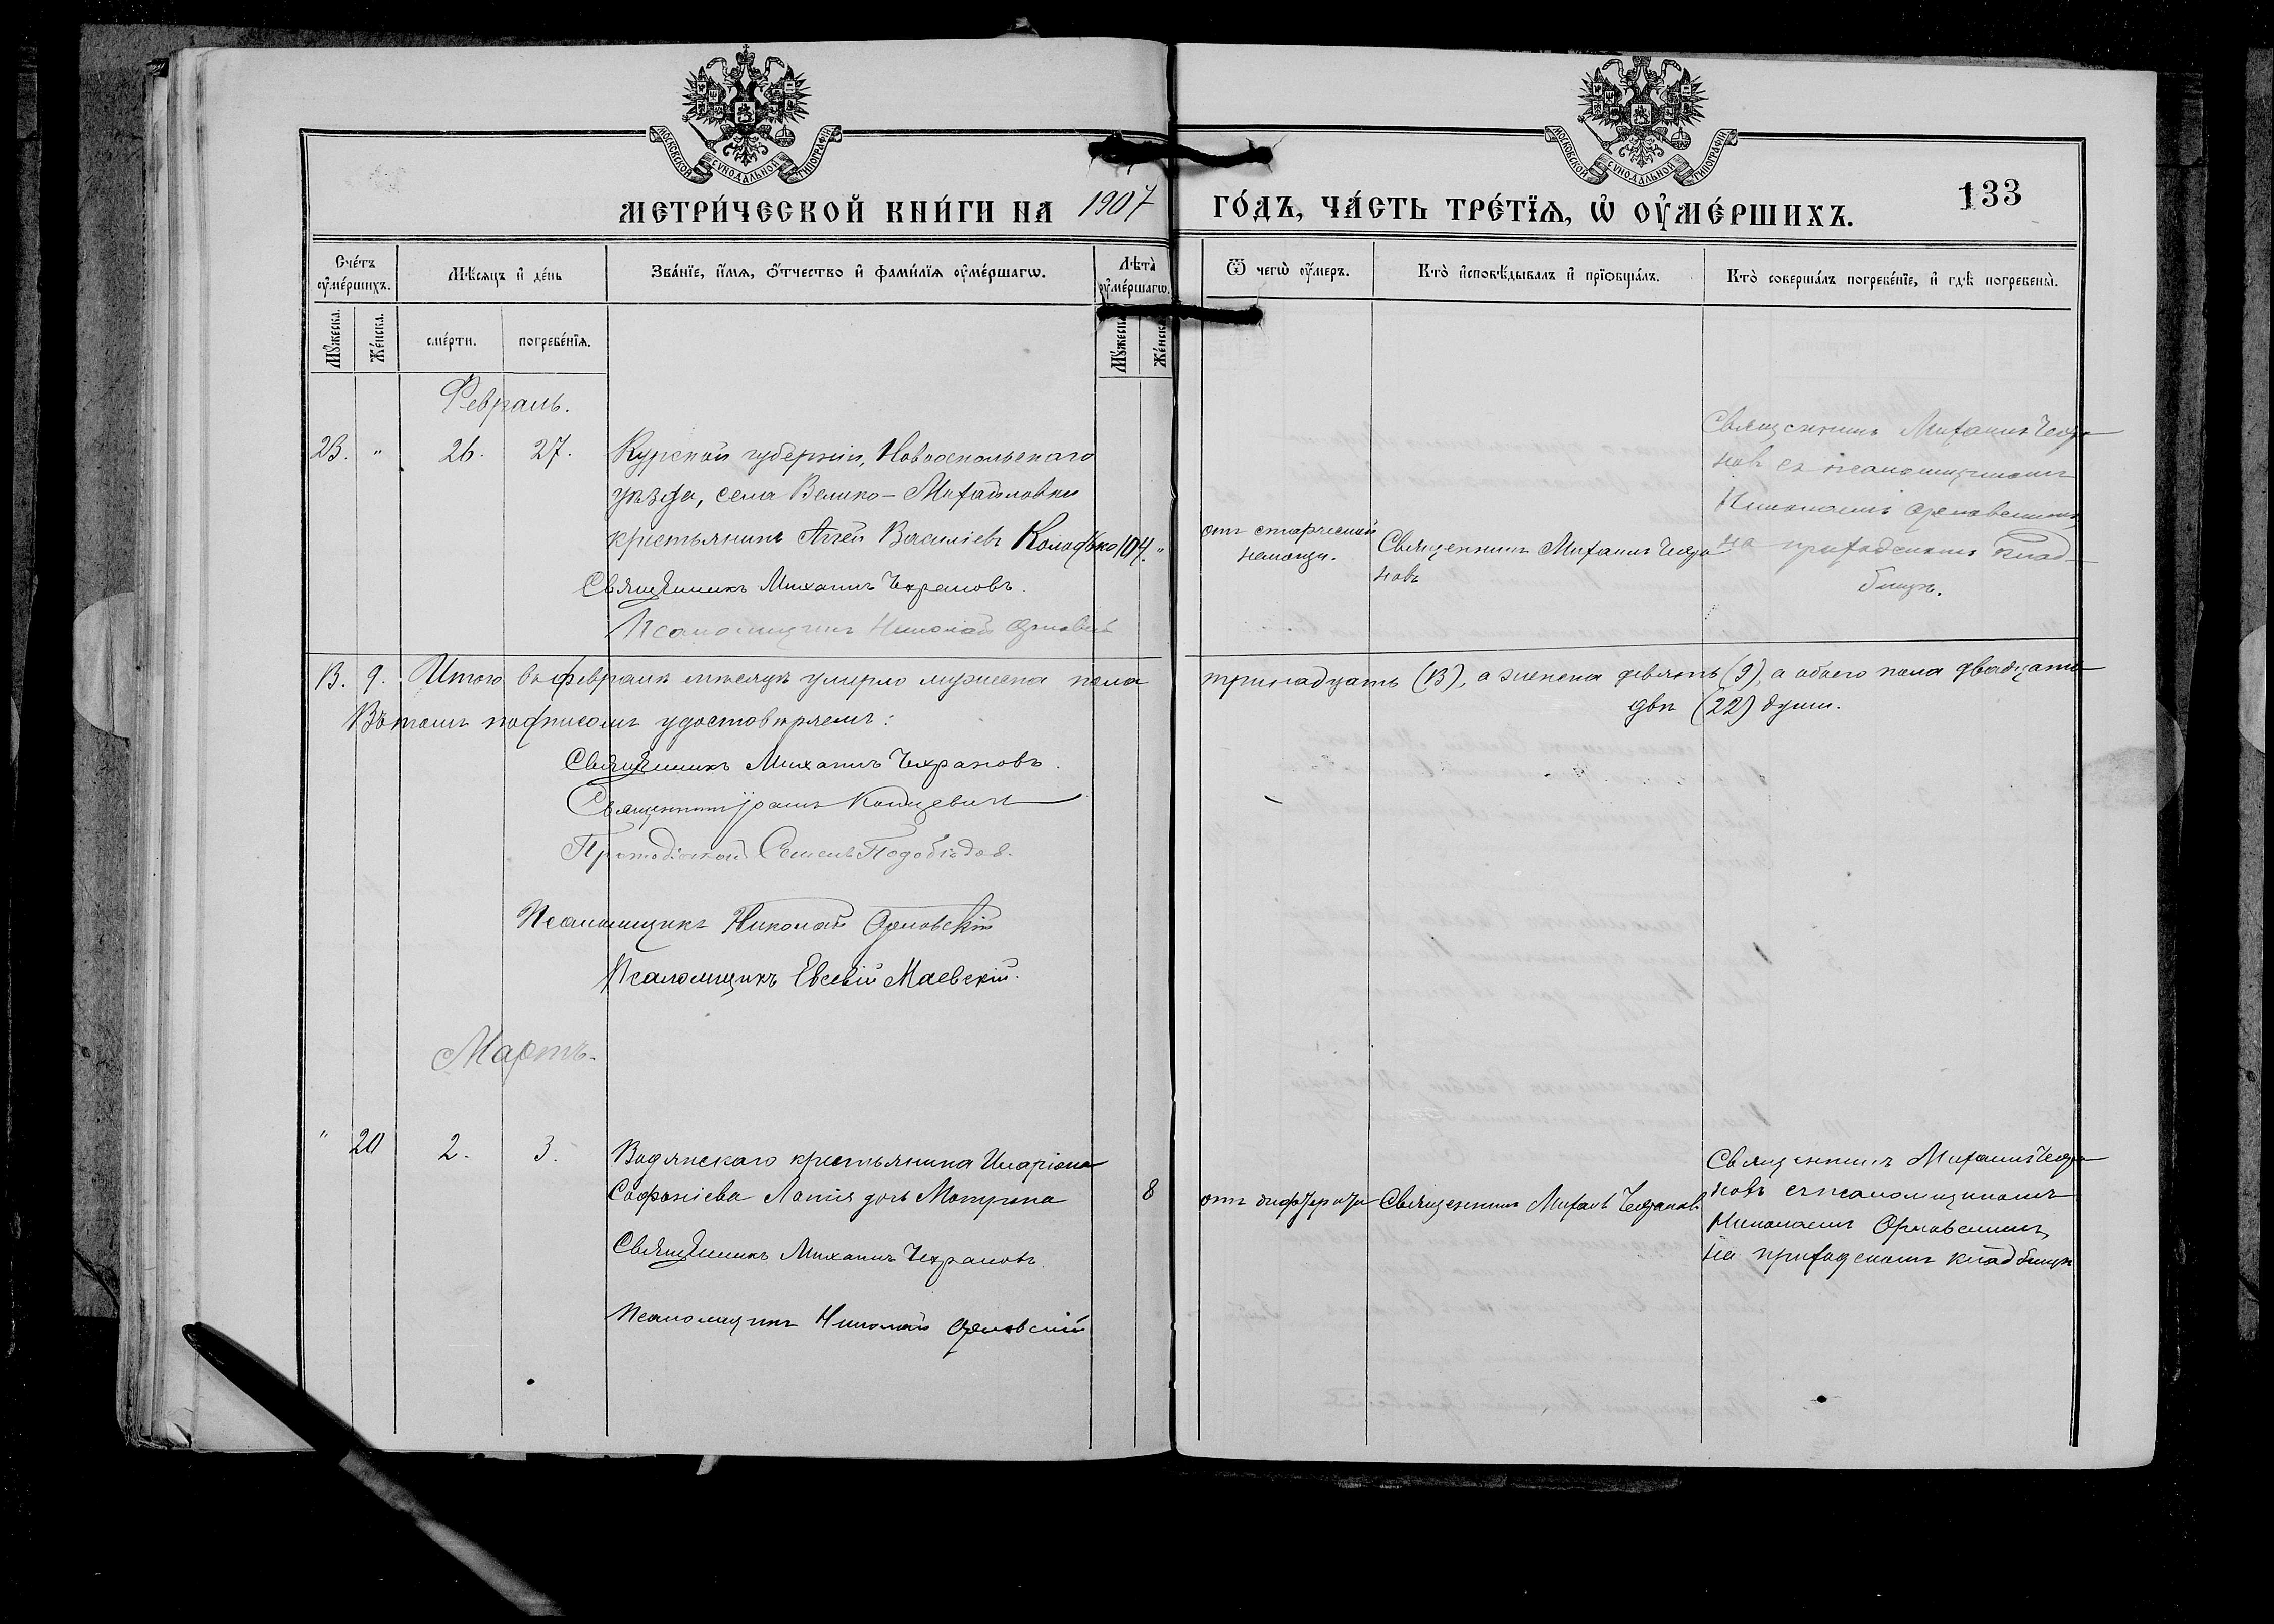 МОСКОВСКОЙ СУНОДАЛЬНОЙ ТИПОГРАФІИ
МОСКОВСКОЙ СУНОДАЛЬНОЙ ТИПОГРАФІИ
133
МЕТРИ́ЧЕСКОЙ КНИ́ГИ НА 1907 ГО́ДЪ, ЧА́СТЬ ТРЕ́ТЇѦ, Ѡ ОУ҆МЕ́РШИХЪ.
Сче́тъ оу҆ме́ршихъ.
Мѣ́сяцъ и҆ де́нь
Зва́нїе, и҆́мѧ, ѻ҆́тчество и҆ фами́лїѧ оу҆ме́ршагѡ.
Лѣта̀ оу҆ме́ршагѡ.
Ѿ чегѡ̀ оу҆́меръ.
Кто̀ и҆сповѣ́дывалъ и҆ прїѡбща́лъ.
Кто̀ соверша́лъ погребе́нїе, и҆ гдѣ̀ погребены̀.
Мꙋ́жеска.
Же́нска.
сме́рти.
погребе́нїѧ.
Мꙋ́жеска.
Же́нска.
Февраль.
23. " 26. 27. Курской губерніи, Новооскольскаго
уѣзда, села Велико-Михайловки
крестьянинъ Аггей Василіевъ Колодько 104. "
Священникъ Михаилъ Чехрановъ.
Псаломщикъ Николай Орловскій
отъ старческой
немощи.
Священникъ Михаилъ Чехра
новъ
Священникъ Михаилъ Чехра
новъ съ псаломщикомъ
Николаемъ Орловскимъ
на приходскомъ клад-
бищѣ.
13. 9. Итого въ февралѣ мѣсяцѣ умерло мужеска пола тринадцать (13), а женска девять (9), а обоего пола двадцать
двѣ (22) души.
Въ томъ подписомъ удостовѣряемъ:
Священникъ Михаилъ Чехрановъ.
Священникъ Іоаннъ
Протодіаконъ Семенъ
Псаломщикъ Николай Орловскій
Псаломщикъ Евсевій Маевскій.
Мартъ.
" 20 2. 3. Водянскаго крестьянина Иларіона
Софоніева дочь Матрона 8
Священникъ Михаилъ Чехрановъ.
Псаломщикъ Николай Орловскій
отъ дифтерита
Священникъ Михаилъ Чехрановъ
Священникъ Михаилъ Чехра
новъ съ псаломщикомъ
Николаемъ Орловскимъ,
на приходскомъ кладбищѣ